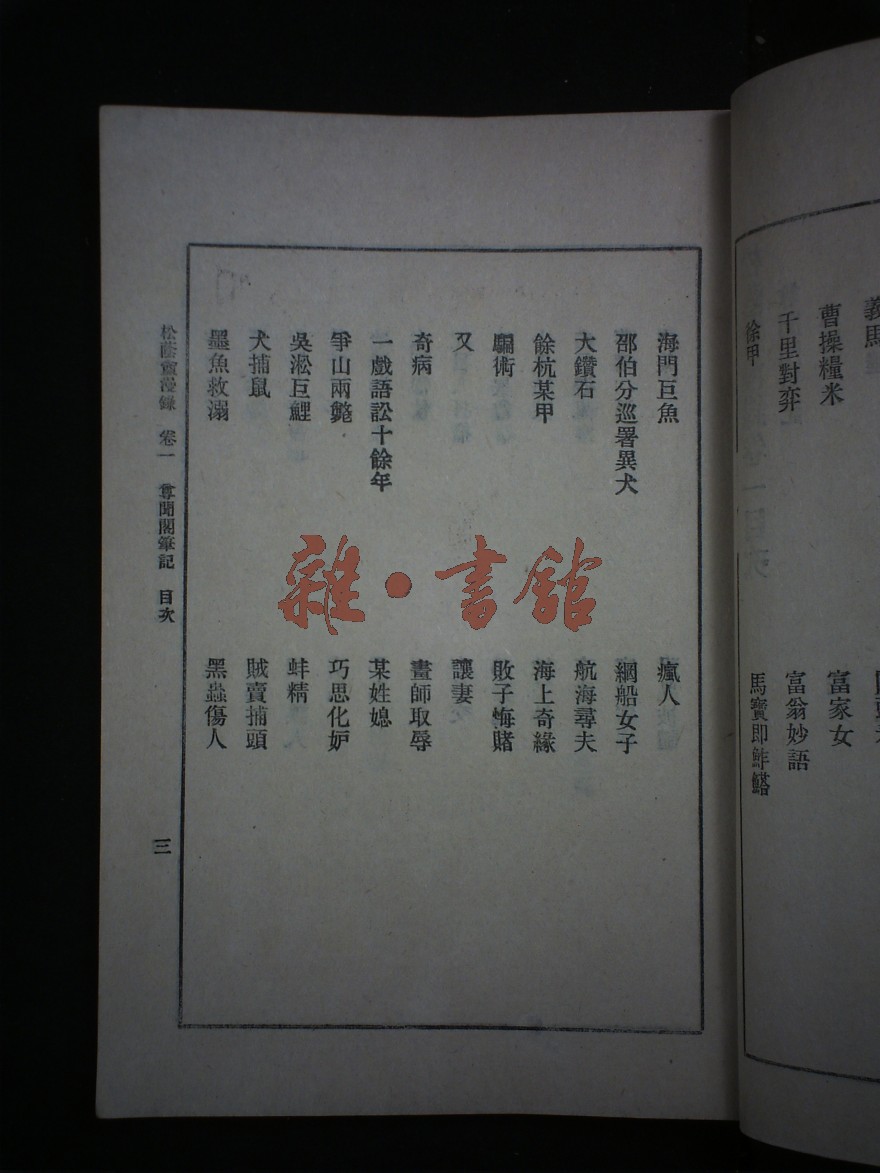 義馬
曹操糧米
富家女
千里對弈
富翁妙語
徐甲
馬寶即鮓鰘
海門巨魚
瘋人
邵伯分巡署異犬
綱船女子
大鑽石
航海尋夫
餘杭某甲
海上奇緣
騙術
敗子悔賭
又
讓妻
奇病
畫師取辱
一戲語訟十餘年
某姓媳
爭山兩斃
巧思化妒
吳淞巨鯉
蚌精
犬捕鼠
賊賣捕頭
墨魚救溺
黑蟲傷人
松蔭盦漫錄 卷一 尊聞閣筆記 目次
三
雜·書館